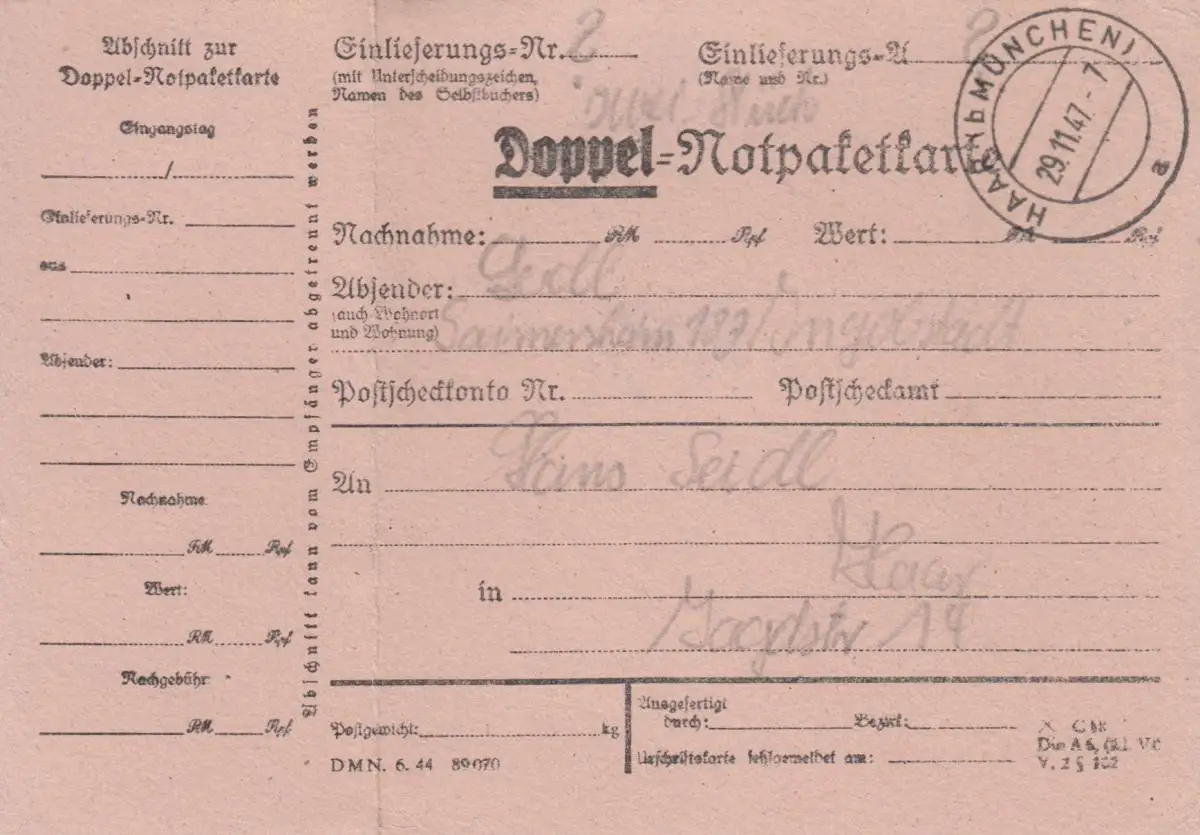 Abschnitt zur
Doppel-Notpaketkarte
Eingangstag
/
Einlieferungs-Nr.
aus
Absender:
Nachnahme
RM Rpf
Wert:
RM Rpf
Nachgebühr
RM Rpf
Abschnitt kann vom Empfänger abgetrennt werden
Einlieferungs-Nr. 2
(mit Unterscheidungszeichen,
Namen des Selbstbuchers)
Einlieferungs-A 2
(Name und Nr.)
HAAR (b MÜNCHEN)
29.11.47.-7
a
Doppel-Notpaketkarte
Nachnahme: RM Rpf Wert: RM Rpf
Absender: Seidl
(auch Wohnort
und Wohnung)
Gaimersheim 187/Ingolstadt
Postscheckkonto Nr. Postscheckamt
An Hans Seidl
in Haar
Jagdstr 14
Postgewicht: kg
DMN. 6. 44 89070
Ausgefertigt
durch: Bezirk:
Urschriftskarte fehlgemeldet am:
Din A 6, (Kl. V
V, 2 §